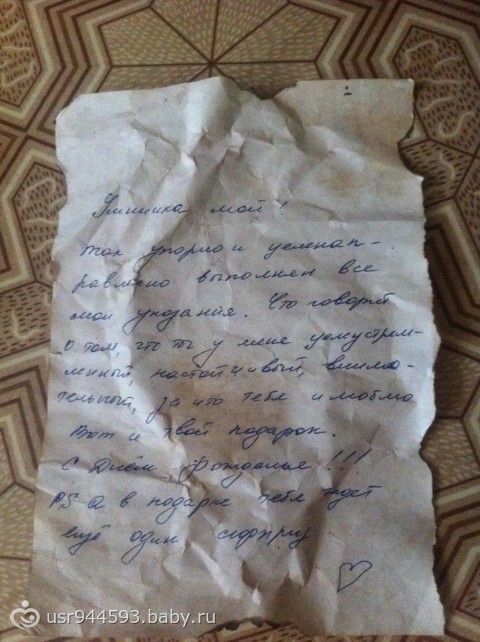 Умничка мой!
так упорно и целенап-
равлено выполнял все
мои указания. Это говорит
о том, что ты у меня целеустрем-
лённый, настойчивый, внима-
тельный, за что тебя и люблю
Вот и твой подарок.
С Днём Рожденье!!!
P.S А в подарке тебя ждёт
ещё один сюрприз
usr944593.baby.ru